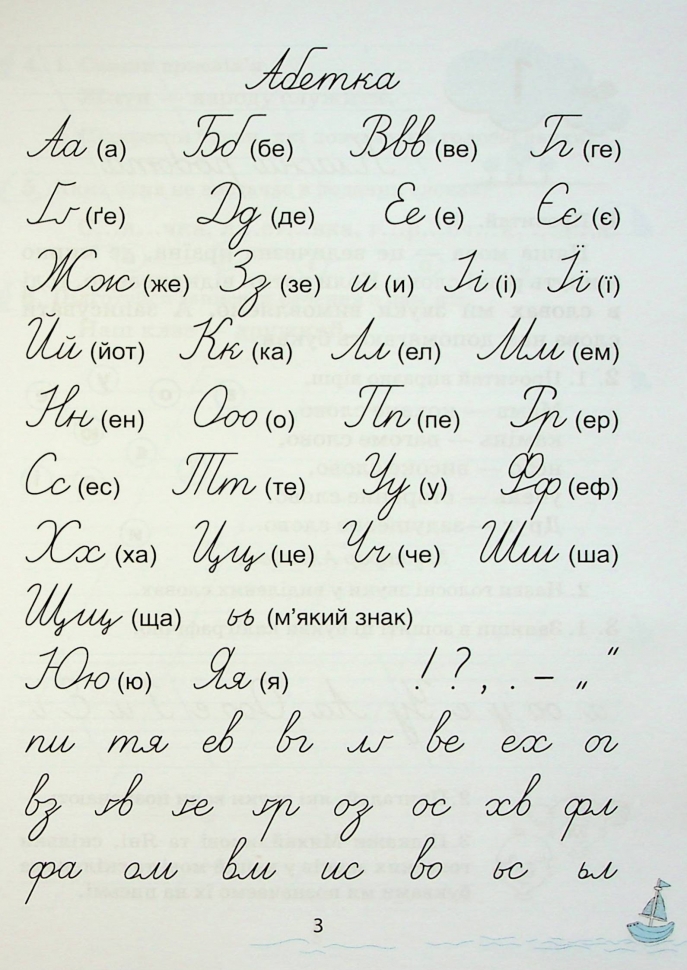 Абетка
Аа (а) Бб (бе) Ввв (ве) Гг (ге)
Ґґ (ґе) Дд (де) Ее (е) Єє (є)
Жж (же) Зз (зе) и (и) Іі (і) Її (ї)
Йй (йот) Кк (ка) Лл (ел) Мм (ем)
Нн (ен) Ооо (о) Пп (пе) Рр (ер)
Сс (ес) Тт (те) Уу (у) Фф (еф)
Хх (ха) Цц (це) Чч (че) Шш (ша)
Щщ (ща) ьь (м’який знак)
Юю (ю) Яя (я) ! ? , . – „ “
пи тя ев вг ве ех ог
вз оз ос хв фл
фа ом вм ис во ьс ьл
3